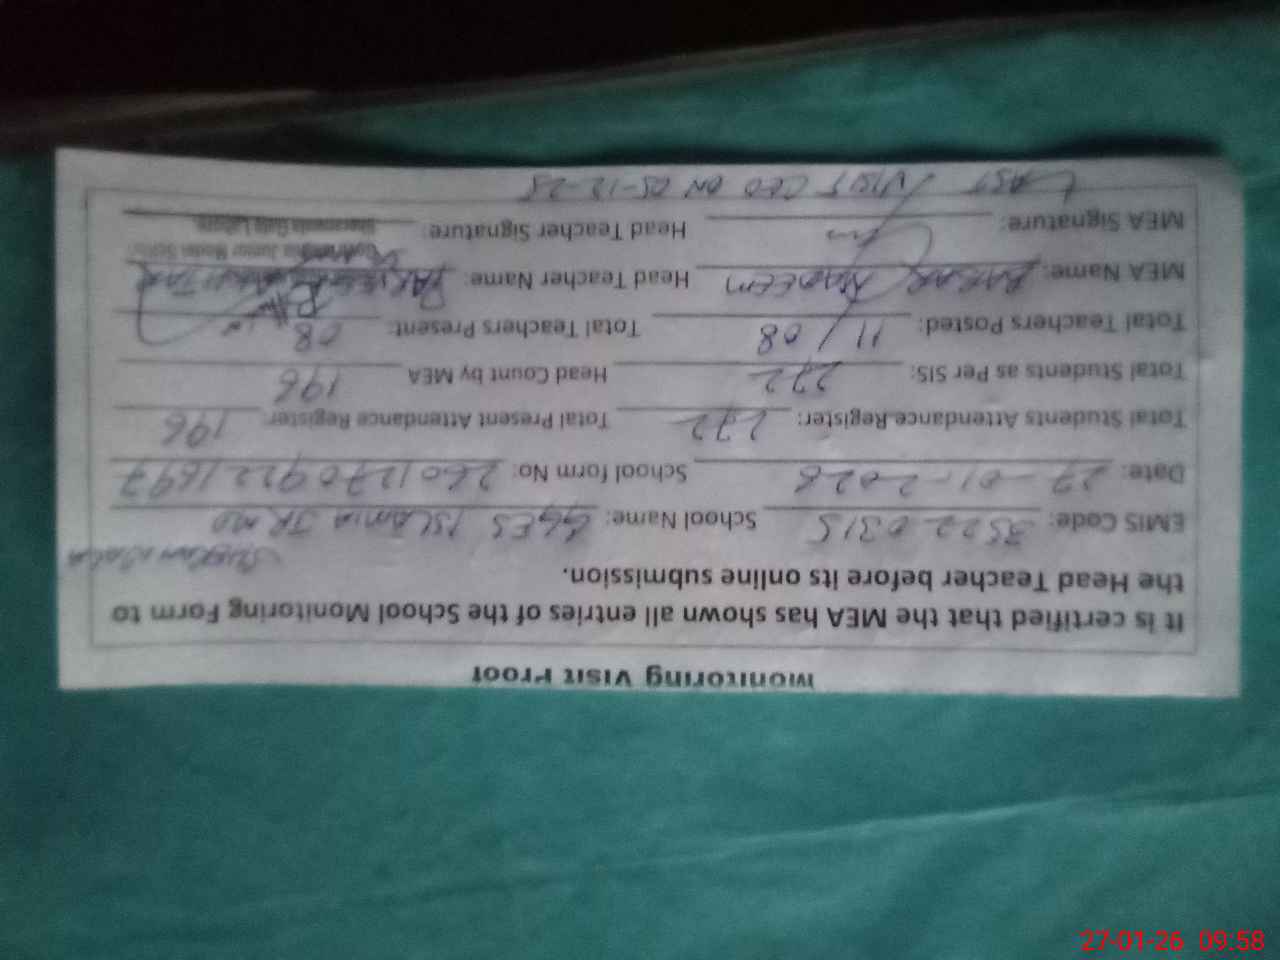 Monitoring Visit Proof
It is certified that the MEA has shown all entries of the School Monitoring Form to
the Head Teacher before its online submission.
EMIS Code: 35220315 School Name: GGES ISLAMIA JR MO
Date: 27-01-2026 School form No: 26012709221697
Total Students Attendance Register: 272 Total Present Attendance Register: 196
Total Students as Per SIS: 272 Head Count by MEA 196
Total Teachers Posted: 11/08 Total Teachers Present: 08
MEA Name: BABAR NADEEM Head Teacher Name: PARVEEN AKHTAR
MEA Signature: Head Teacher Signature:
Junior Model School
LAST VISIT CEO ON 05-12-25
27-01-26 09:58